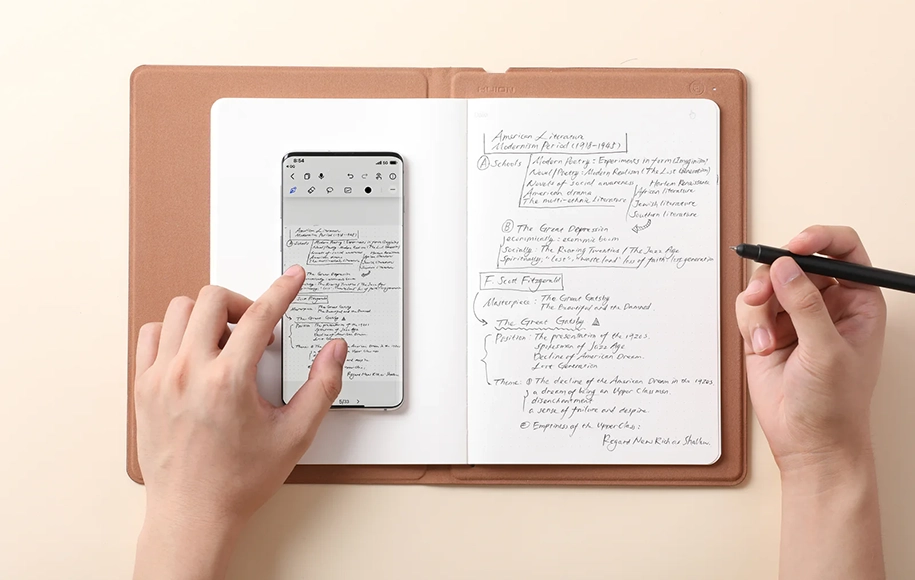 HUION
8:54
5G
American Literature
Modernism Period (1918-1945)
Ⓐ Schools
Modern Poetry: Experiments in form (Imaginism)
Novel/Poetry: Modern Realism (The Lost Generation)
Novels of social awareness
American drama
The multi-ethnic literature
Harlem Renaissance
African literature
Jewish literature
Southern literature
Ⓑ The Great Depression
economically: economic boom
Socially: The Roaring Twenties / The Jazz Age
Spiritually: "lost", "waste land" loss of faith / lig generation
F. Scott Fitzgerald
Masterpiece: The Great Gatsby
The Beautiful and the Damned
The Great Gatsby
Position: The presentation of the 1920s.
spokesman of Jazz Age
Decline of American Dream.
Lost Generation
Theme: ① The decline of the American Dream in the 1920s.
a dream of being an Upper Classman.
disenchantment
a sense of failure and despire.
② Emptiness of the Upper Class:
Regard New Rich as Shallow